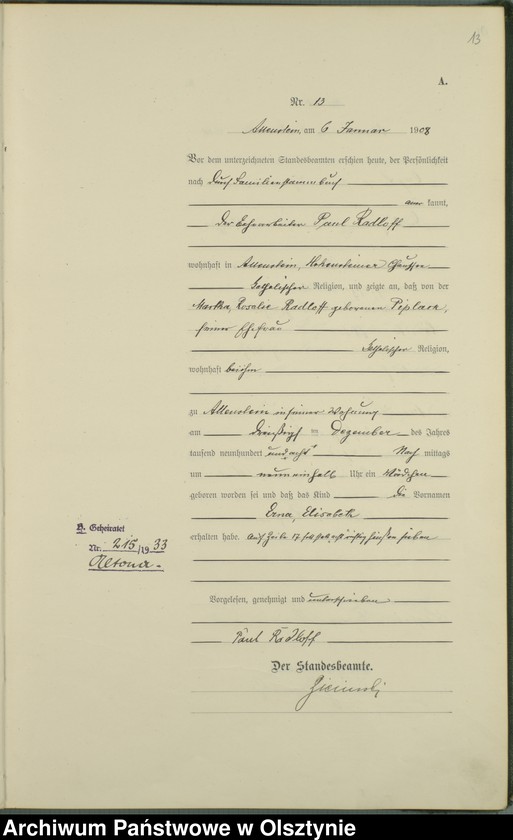 13
A.
Nr. 13
Allenstein, am 6 Januar 1908
Vor dem unterzeichneten Standesbeamten erschien heute, der Persönlichkeit
nach durch Familienstammbuch
kannt,
der Paul Radloff
wohnhaft in Allenstein, Hohensteiner Chaussee
katholischer Religion, und zeigte an, daß von der
Martha, Rosalie Radloff geborenen Piplack,
seiner Ehefrau
katholischer Religion,
wohnhaft bei ihm
zu Allenstein in seiner Wohnung
am Dezember des Jahres
tausend neunhundert und acht Nach mittags
um neuneinhalb Uhr ein Mädchen
geboren worden sei und daß das Kind die Vornamen
Erna, Elisabeth
erhalten habe. Auf Zeile 17 sieben
Vorgelesen, genehmigt und unterschrieben
Paul Radloff
Der Standesbeamte.
H. Geheiratet
Nr. 215/1933
Altona
Archiwum Państwowe w Olsztynie